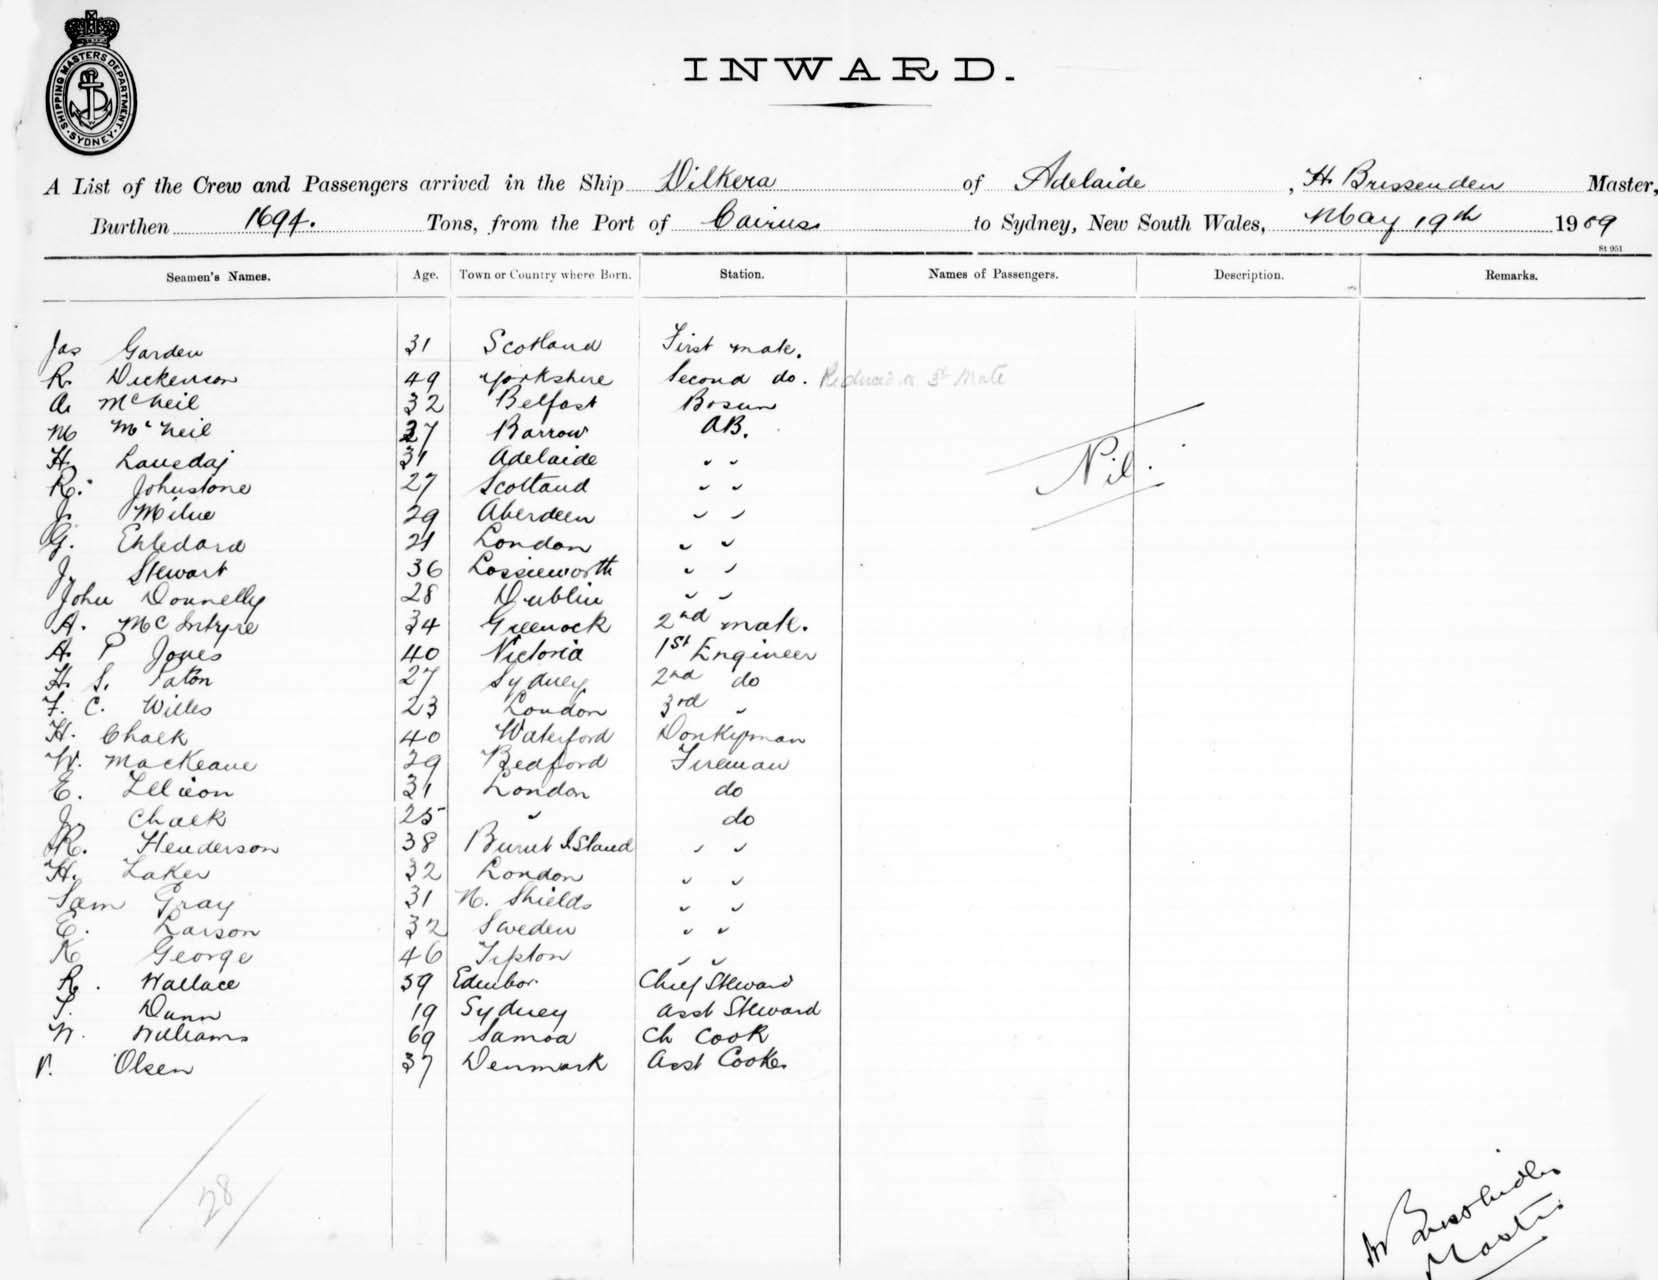 SHIPPING MASTERS DEPARTMENT
SYDNEY
INWARD.
A List of the Crew and Passengers arrived in the Ship Dilkera of Adelaide, H. Brissenden Master,
Burthen 1694. Tons, from the Port of Cairns to Sydney, New South Wales, May 19th 1909
St 951
Seamen's Names. Age. Town or Country where Born. Station. Names of Passengers. Description. Remarks.
Jas Garden 31 Scotland First mate.
R. Dickenson 49 Yorkshire Second do. Reduced to 3rd Mate
A. McNeil 32 Belfast Bosun
M McNeil 27 Barrow AB.
H. 31 Adelaide " "
Nil.
R. Johnstone 27 Scotland " "
J. Milne 29 Aberdeen " "
G. 21 London " "
J. Stewart 36 Lossieworth " "
John Donnelly 28 Dublin " "
A. McIntyre 34 Greenock 2nd mate.
A. P Jones 40 Victoria 1st Engineer
H. S. Paton 27 Sydney 2nd do
F. C. Willis 23 London 3rd "
H. Chalk 40 Waterford Donkyman
W. MacKeane 29 Bedford Fireman
E. 31 London do
J. Chalk 25 " do
R. Henderson 38 Burnt Island " "
H. Laker 32 London " "
Sam Gray 31 N. Shields " "
E. Larson 32 Sweden " "
K George 46 Tipton " "
R. Wallace 39 Edinbor Chief Steward
T. Dunn 19 Sydney asst Steward
W. Williams 69 Samoa Ch Cook
P. Olsen 37 Denmark Asst Cook.
28
H Brissenden
Master